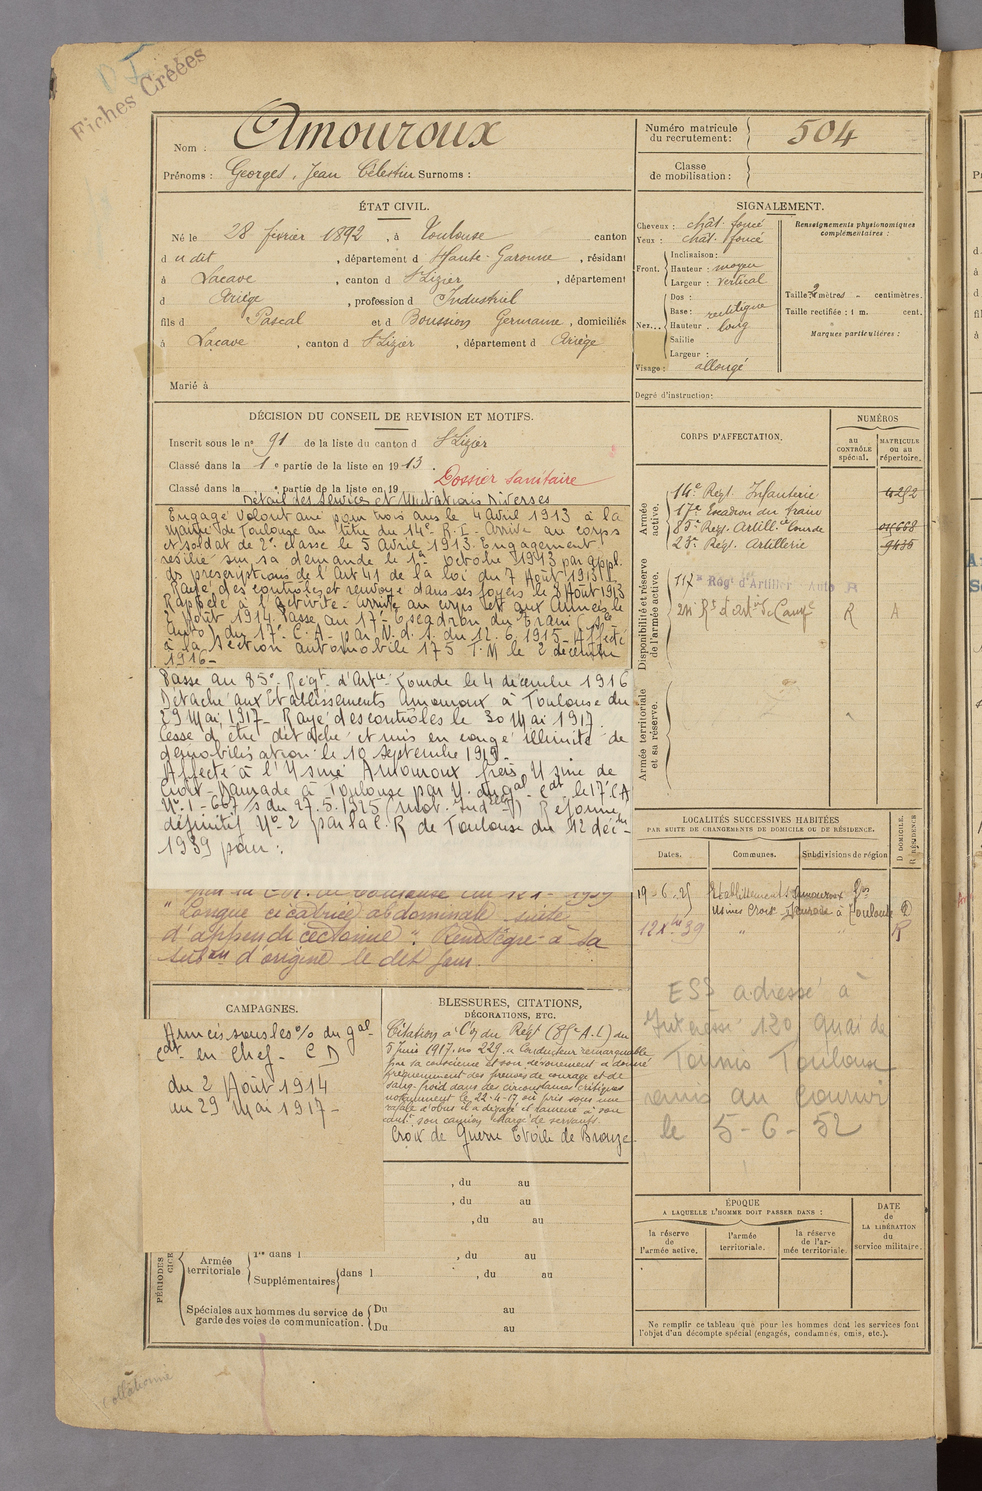 Fiches Créées
Nom : Amouroux
Prénoms : Georges, Jean Célestin Surnoms :
Numéro matricule du recrutement : 504
Classe de mobilisation :
ÉTAT CIVIL.
Né le 28 février 1892, à Toulouse canton
d u dit, département d Haute-Garonne, résidant
à Lacave, canton d St Lizier, département
d Ariège, profession d Industriel
fils d Pascal et d Boussion Germaine, domiciliés
à Lacave, canton d St Lizier, département d Ariège
Marié à
SIGNALEMENT.
Cheveux : chât. foncé
Yeux : chât. foncé
Front. Inclinaison :
Hauteur : moyen
Largeur : vertical
Nez... Dos :
Base : rectiligne
Hauteur : long
Saillie
Largeur :
Visage : allongé
Renseignements physionomiques complémentaires :
Taille : mètres centimètres.
Taille rectifiée : 1 m. cent.
Marques particulières :
Degré d'instruction :
DÉCISION DU CONSEIL DE REVISION ET MOTIFS.
Inscrit sous le n° 91 de la liste du canton d St Lizier
Classé dans la 1e partie de la liste en 1913.
Dossier Sanitaire
Classé dans la e partie de la liste en 19
Détail des Services et Mutations Diverses
Engagé volontaire pour trois ans le 4 Avril 1913 à la
Mairie de Toulouse au titre du 14e R.I. Arrivé au corps
et soldat de 2e classe le 5 Avril 1913. Engagement
résilié sur sa demande le 1er octobre 1913 par appl.
des prescriptions de l'Art 41 de la loi du 7 Août 1913
Rayé des contrôles et renvoyé dans ses foyers le
Rappelé à l'activité. Arrivé au corps et aux Armées le
2 Août 1914. Passé au 17e Escadron du Train (Sce
Auto) du 17e C.A. par N. d. S. du 12.6.1915. Affecté
à la Section automobile 175 T.M le 2 décembre
1916-
Passé au 85e Régt. d'Artie Lourde le 4 décembre 1916
Détaché aux Etablissements Amouroux à Toulouse du
29 Mai 1917- Rayé des contrôles le 30 Mai 1917.
Cesse d'être détaché et mis en congé illimité de
démobilisation le 10 Septembre 1919-
Affecté à l'Usine Amouroux frères Usine de
Croix-Daurade à Toulouse par N. du gal Cdt le 17e CA
No. 1-667/s du 27.5.1925 (Mob. Indelle) Réformé
définitif No 2 par la C.R de Toulouse du 12 déc-
1939 pour :
"Longue cicatrice abdominale suite
d'appendicectomie". Réintégré à sa
subon d'origine le dit jour.
CORPS D'AFFECTATION.
NUMÉROS
au CONTRÔLE spécial.
MATRICULE ou au répertoire.
Armée active.
14e Régt. Infanterie
17e Escadron du train
85e Reg. Artillie Lourde
23e Régt. Artillerie 9436
Disponibilité et réserve de l'armée active.
117e Régt d'Artiller Auto R
R A
Armée territoriale et sa réserve.
LOCALITÉS SUCCESSIVES HABITÉES
PAR SUITE DE CHANGEMENTS DE DOMICILE OU DE RÉSIDENCE.
Dates. Communes. Subdivisions de région
D DOMICILE. R RÉSIDENCE
19-6-25 Etablissements Amouroux Frs
Usines Croix-Daurade à Toulouse D
12 Xbre 39 " " R
ESS adressé à
l'intéressé 120 quai de
Tounis Toulouse
remis au courrier
le 5-6-52
CAMPAGNES.
Armées sous les o/o du gal
Cdt en Chef- CD
du 2 Août 1914
au 29 Mai 1917-
BLESSURES, CITATIONS, DÉCORATIONS, ETC.
Citation à l'O/ du Régt (85e A.L) du
5 Juin 1917. no 229. "Conducteur remarquable
par sa conscience et son dévouement a donné
fréquemment des preuves de courage et de
sang-froid dans des circonstances critiques
notamment le 22-4-17 où pris sous une
rafale d'obus il a dégagé et ramené à son
cant. son camion chargé de servants.
Croix de Guerre Etoile de Bronze
, du au
, du au
, du au
PÉRIODES
Armée territoriale 1re dans l , du au
Supplémentaires dans l , du au
Spéciales aux hommes du service de garde des voies de communication. Du au
Du au
ÉPOQUE
A LAQUELLE L'HOMME DOIT PASSER DANS :
la réserve de l'armée active.
l'armée territoriale.
la réserve de l'armée territoriale.
DATE de LA LIBÉRATION du service militaire.
Ne remplir ce tableau que pour les hommes dont les services font
l'objet d'un décompte spécial (engagés, condamnés, omis, etc.).
collationné